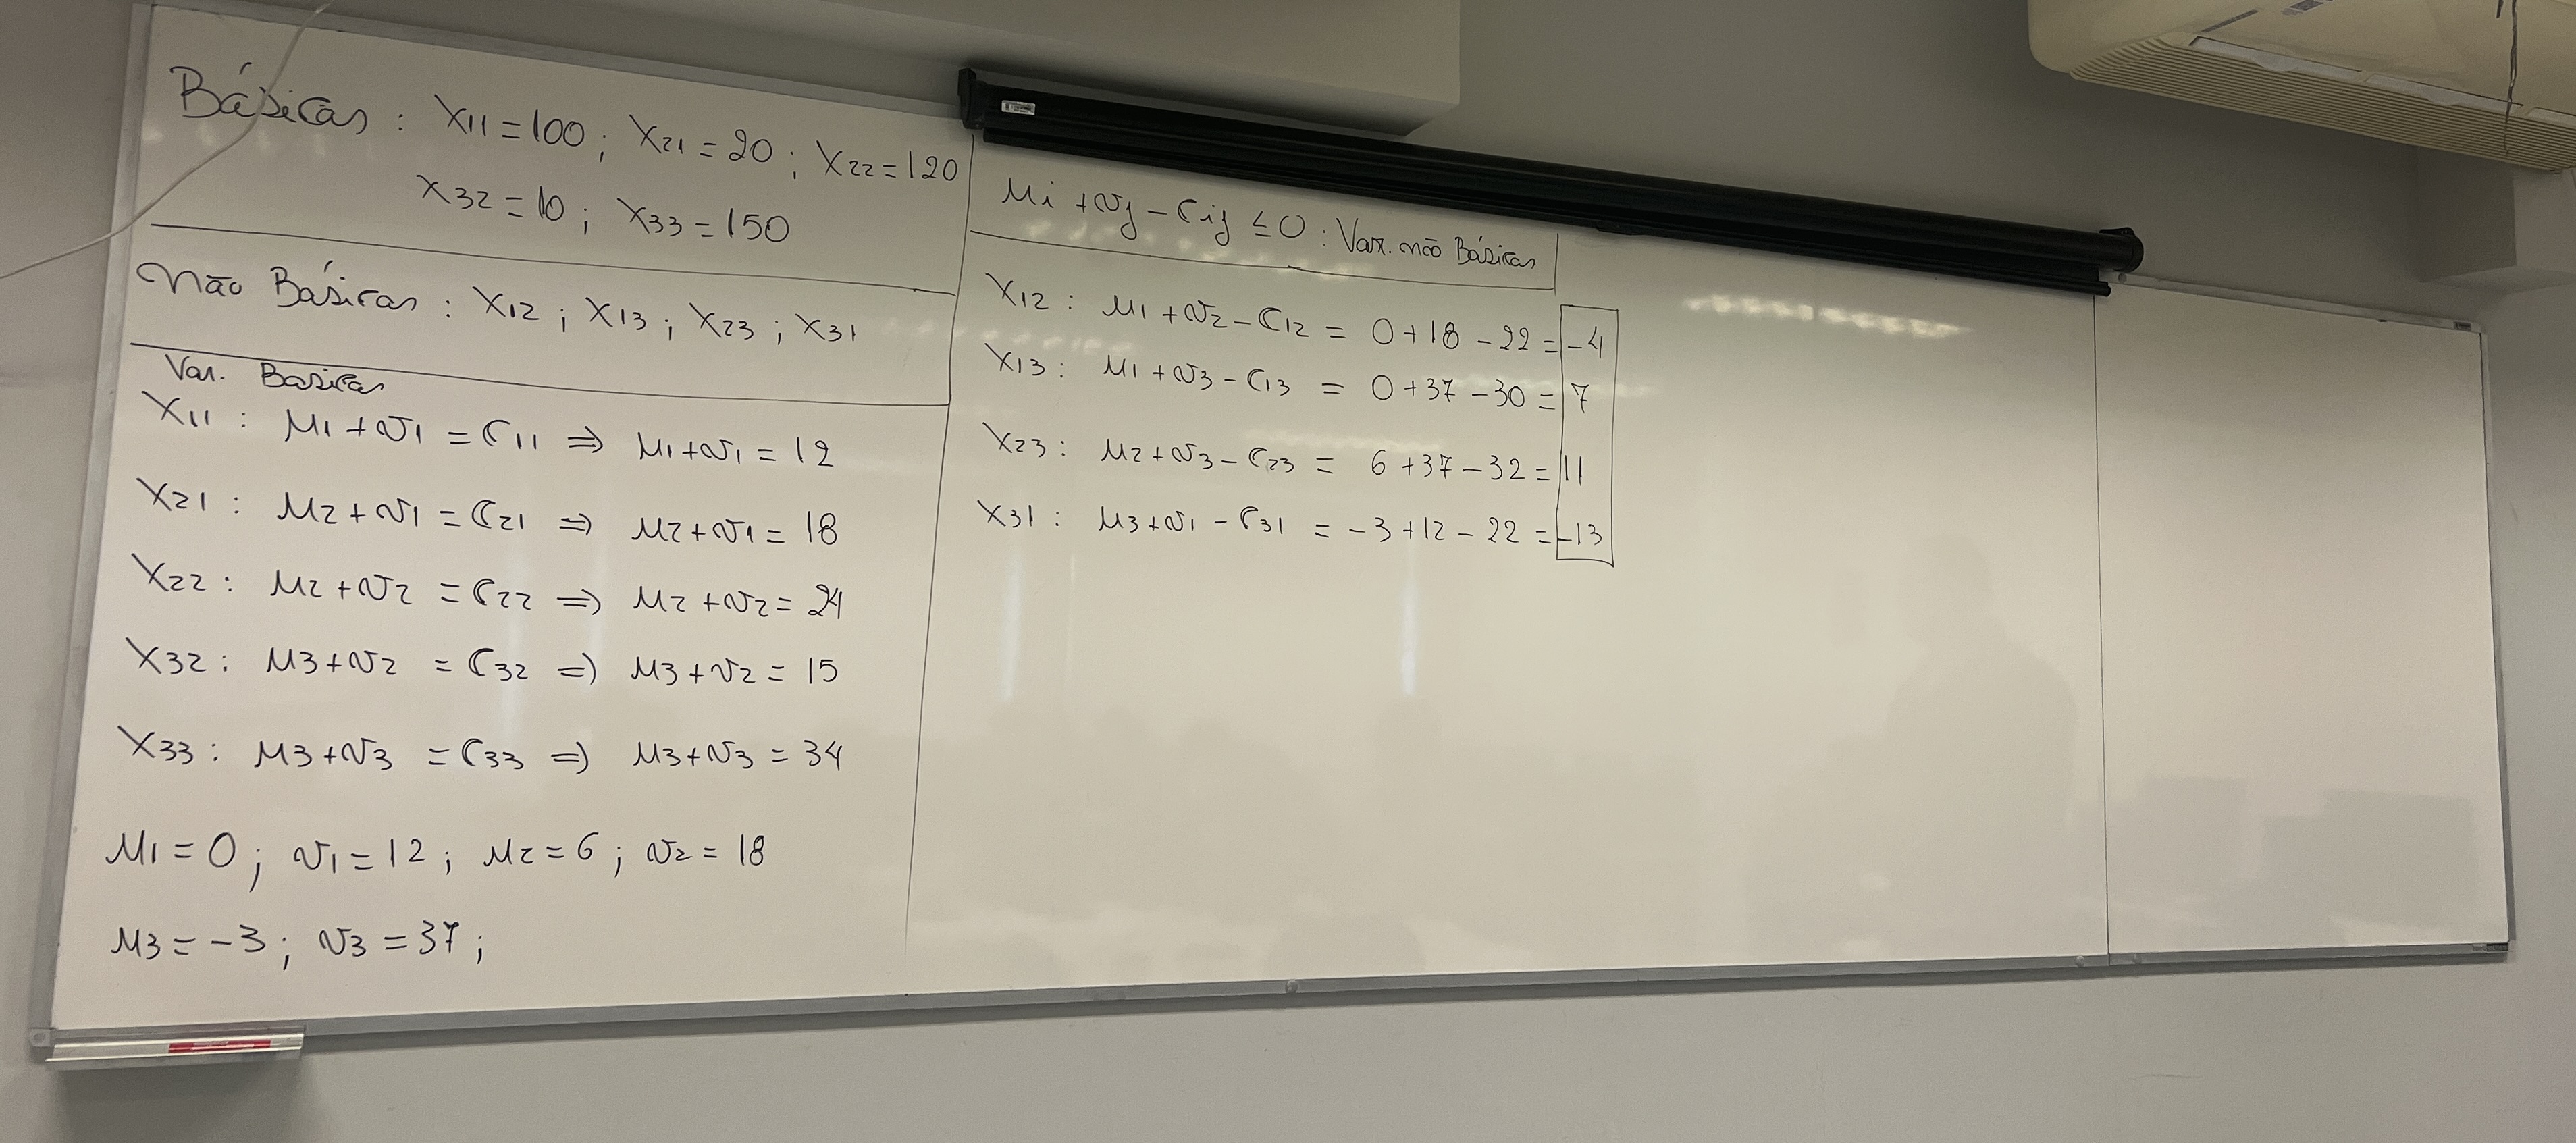 Básicas : X11 = 100 ; X21 = 20 ; X22 = 120
X32 = 10 ; X33 = 150
Não Básicas : X12 ; X13 ; X23 ; X31
Var. Basicas
X11 : μ1 + v1 = C11 ⇒ μ1 + v1 = 12
X21 : μ2 + v1 = C21 ⇒ μ2 + v1 = 18
X22 : μ2 + v2 = C22 ⇒ μ2 + v2 = 24
X32 : μ3 + v2 = C32 ⇒ μ3 + v2 = 15
X33 : μ3 + v3 = C33 ⇒ μ3 + v3 = 34
μ1 = 0 ; v1 = 12 ; μ2 = 6 ; v2 = 18
μ3 = -3 ; v3 = 37 ;
μi + vj - Cij ≤ 0 : Var. não Básicas
X12 : μ1 + v2 - C12 = 0 + 18 - 22 = -4
X13 : μ1 + v3 - C13 = 0 + 37 - 30 = 7
X23 : μ2 + v3 - C23 = 6 + 37 - 32 = 11
X31 : μ3 + v1 - C31 = -3 + 12 - 22 = -13